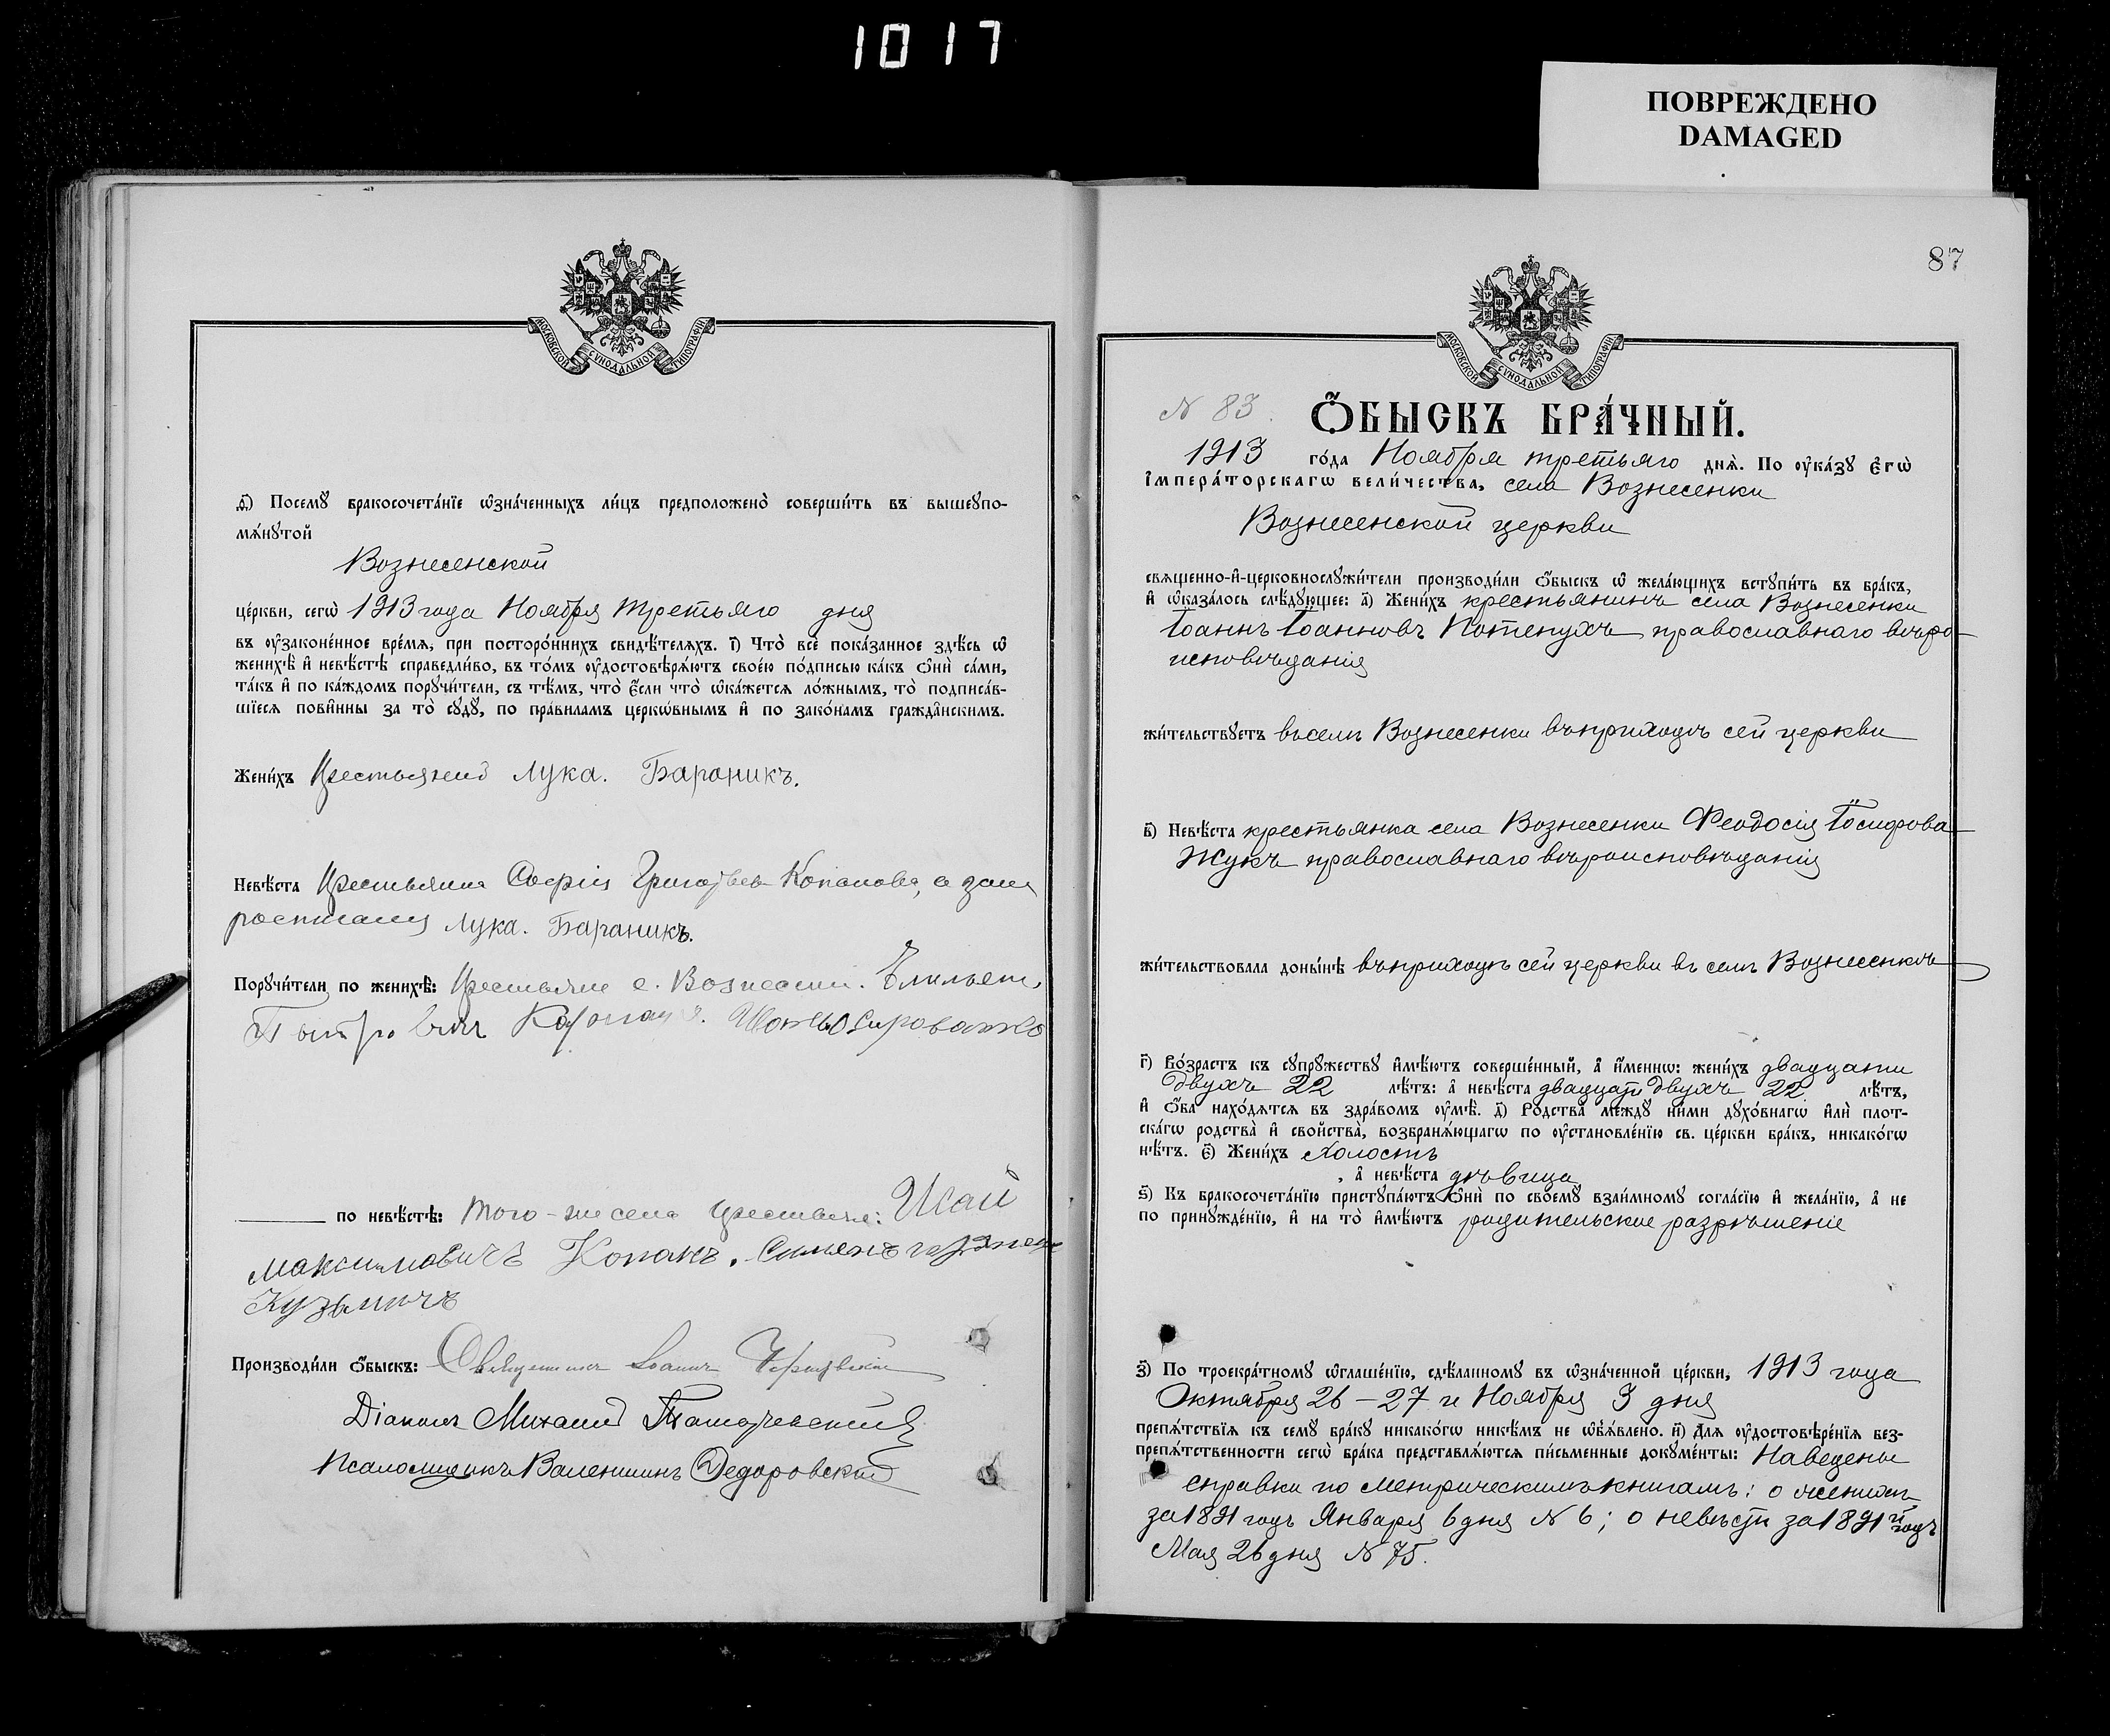 1017
ПОВРЕЖДЕНО
DAMAGED
МОСКОВСКОЙ СУНОДАЛЬНОЙ ТИПОГРАФІИ
д҃) Посемꙋ бракосочета́нїе ѡ҆зна́ченныхъ ли́цъ предположено̀ соверши́ть въ вышеꙋпо-
мѧ́нꙋтой
Вознесенской
це́ркви, сегѡ̀ 1913 года Ноября третьяго дня
въ ᲂу҆законе́нное вре́мѧ, при посторо́ннихъ свидѣ́телѧхъ. і҃) Что̀ всѐ пока́занное здѣ́сь ѡ҆
женихѣ̀ и҆ невѣ́стѣ справедли́во, въ то́мъ ᲂу҆достовѣрѧ́ютъ свое́ю по́дписью ка́къ ѻ҆нѝ са́ми,
та́къ и҆ по ка́ждомъ порꙋчи́тели, съ тѣ́мъ, что̀ е҆́сли что̀ ѡ҆ка́жетсѧ ло́жнымъ, то̀ подписа́в-
шїесѧ пови́нны за то̀ сꙋдꙋ̀, по пра́виламъ церко́внымъ и҆ по зако́намъ гражда́нскимъ.
Жени́хъ Крестьянинъ Лука. Бараникъ.
Невѣ́ста Крестьянка Софія Григорьева Копакова, а за нея
росписался Лука. Бараникъ.
Порꙋчи́тели по женихѣ̀: Крестьяне с. Вознесенки.
по невѣ́стѣ: того-же села крестьяне: Исай
Максимовичъ Копакъ. Сименъ
Кузьмичъ
Производи́ли ѻ҆́быскъ: Священникъ Іоаннъ
Діаконъ Михаилъ
Псаломщикъ Валентинъ Федоровский
87
МОСКОВСКОЙ СУНОДАЛЬНОЙ ТИПОГРАФІИ
N 83.
Ѻ҆́БЫСКЪ БРА́ЧНЫЙ.
1913 го́да Ноября третьяго днѧ̀. По ᲂу҆ка́зꙋ є҆гѡ̀
і҆мпера́торскагѡ вели́чества, села Вознесенки
Вознесенской церкви
свѧщенно-и҆-церковнослꙋжи́тели производи́ли ѻ҆́быскъ ѡ҆ жела́ющихъ встꙋпи́ть въ бра́къ,
и҆ ѡ҆каза́лось слѣ́дꙋющее: а҃) Жени́хъ крестьянинъ села Вознесенки
Іоаннъ Іоанновъ Потепухъ православнаго вѣро-
исповѣданія
жи́тельствꙋетъ въ селѣ Вознесенки въ приходѣ сей церкви
в҃) Невѣ́ста крестьянка села Вознесенки Феодосія Іосифова
Жукъ православнаго вѣроисповѣданія
жи́тельствовала доны́нѣ въ приходѣ сей церкви въ селѣ Вознесенкѣ
г҃) Во́зрастъ къ сꙋпрꙋ́жествꙋ и҆мѣ́ютъ соверше́нный, а҆ и҆́меннѡ: жени́хъ двадцати
двухъ 22 лѣ́тъ: а҆ невѣ́ста двадцати двухъ 22 лѣ́тъ,
и҆ ѻ҆́ба нахо́дѧтсѧ въ здра́вомъ ᲂу҆мѣ̀. д҃) Родства̀ междꙋ̀ ни́ми дꙋхо́внагѡ и҆лѝ плот-
ска́гѡ родства̀ и҆ свойства̀, возбранѧ́ющагѡ по ᲂу҆становле́нїю св. це́ркви бра́къ, никако́гѡ
нѣ́тъ. є҃) Жени́хъ холостъ
, а҆ невѣ́ста дѣвица
ѕ҃) Къ бракосочета́нїю пристꙋпа́ютъ ѻ҆нѝ по своемꙋ̀ взаи́мномꙋ согла́сїю и҆ жела́нїю, а҆ не
по принꙋжде́нїю, и҆ на то̀ и҆мѣ́ютъ родительское разрѣшеніе
з҃) По троекра́тномꙋ ѡ҆глаше́нїю, сдѣ́ланномꙋ въ ѡ҆зна́ченной це́ркви, 1913 года
Октября 26 - 27 и Ноября 3 дня
препѧ́тствїѧ къ семꙋ̀ бра́кꙋ никако́гѡ никѣ́мъ не ѡ҆б̾ѧ́влено. и҃) Длѧ ᲂу҆достовѣре́нїѧ без-
препѧ́тственности сегѡ̀ бра́ка представлѧ́ютсѧ пи́сьменные докꙋме́нты: Наведены
справки по метрическимъ книгамъ: о женихѣ
за 1891 годъ Января 6 дня N 6; о невѣстѣ за 1891й годъ
Мая 26 дня N 75.